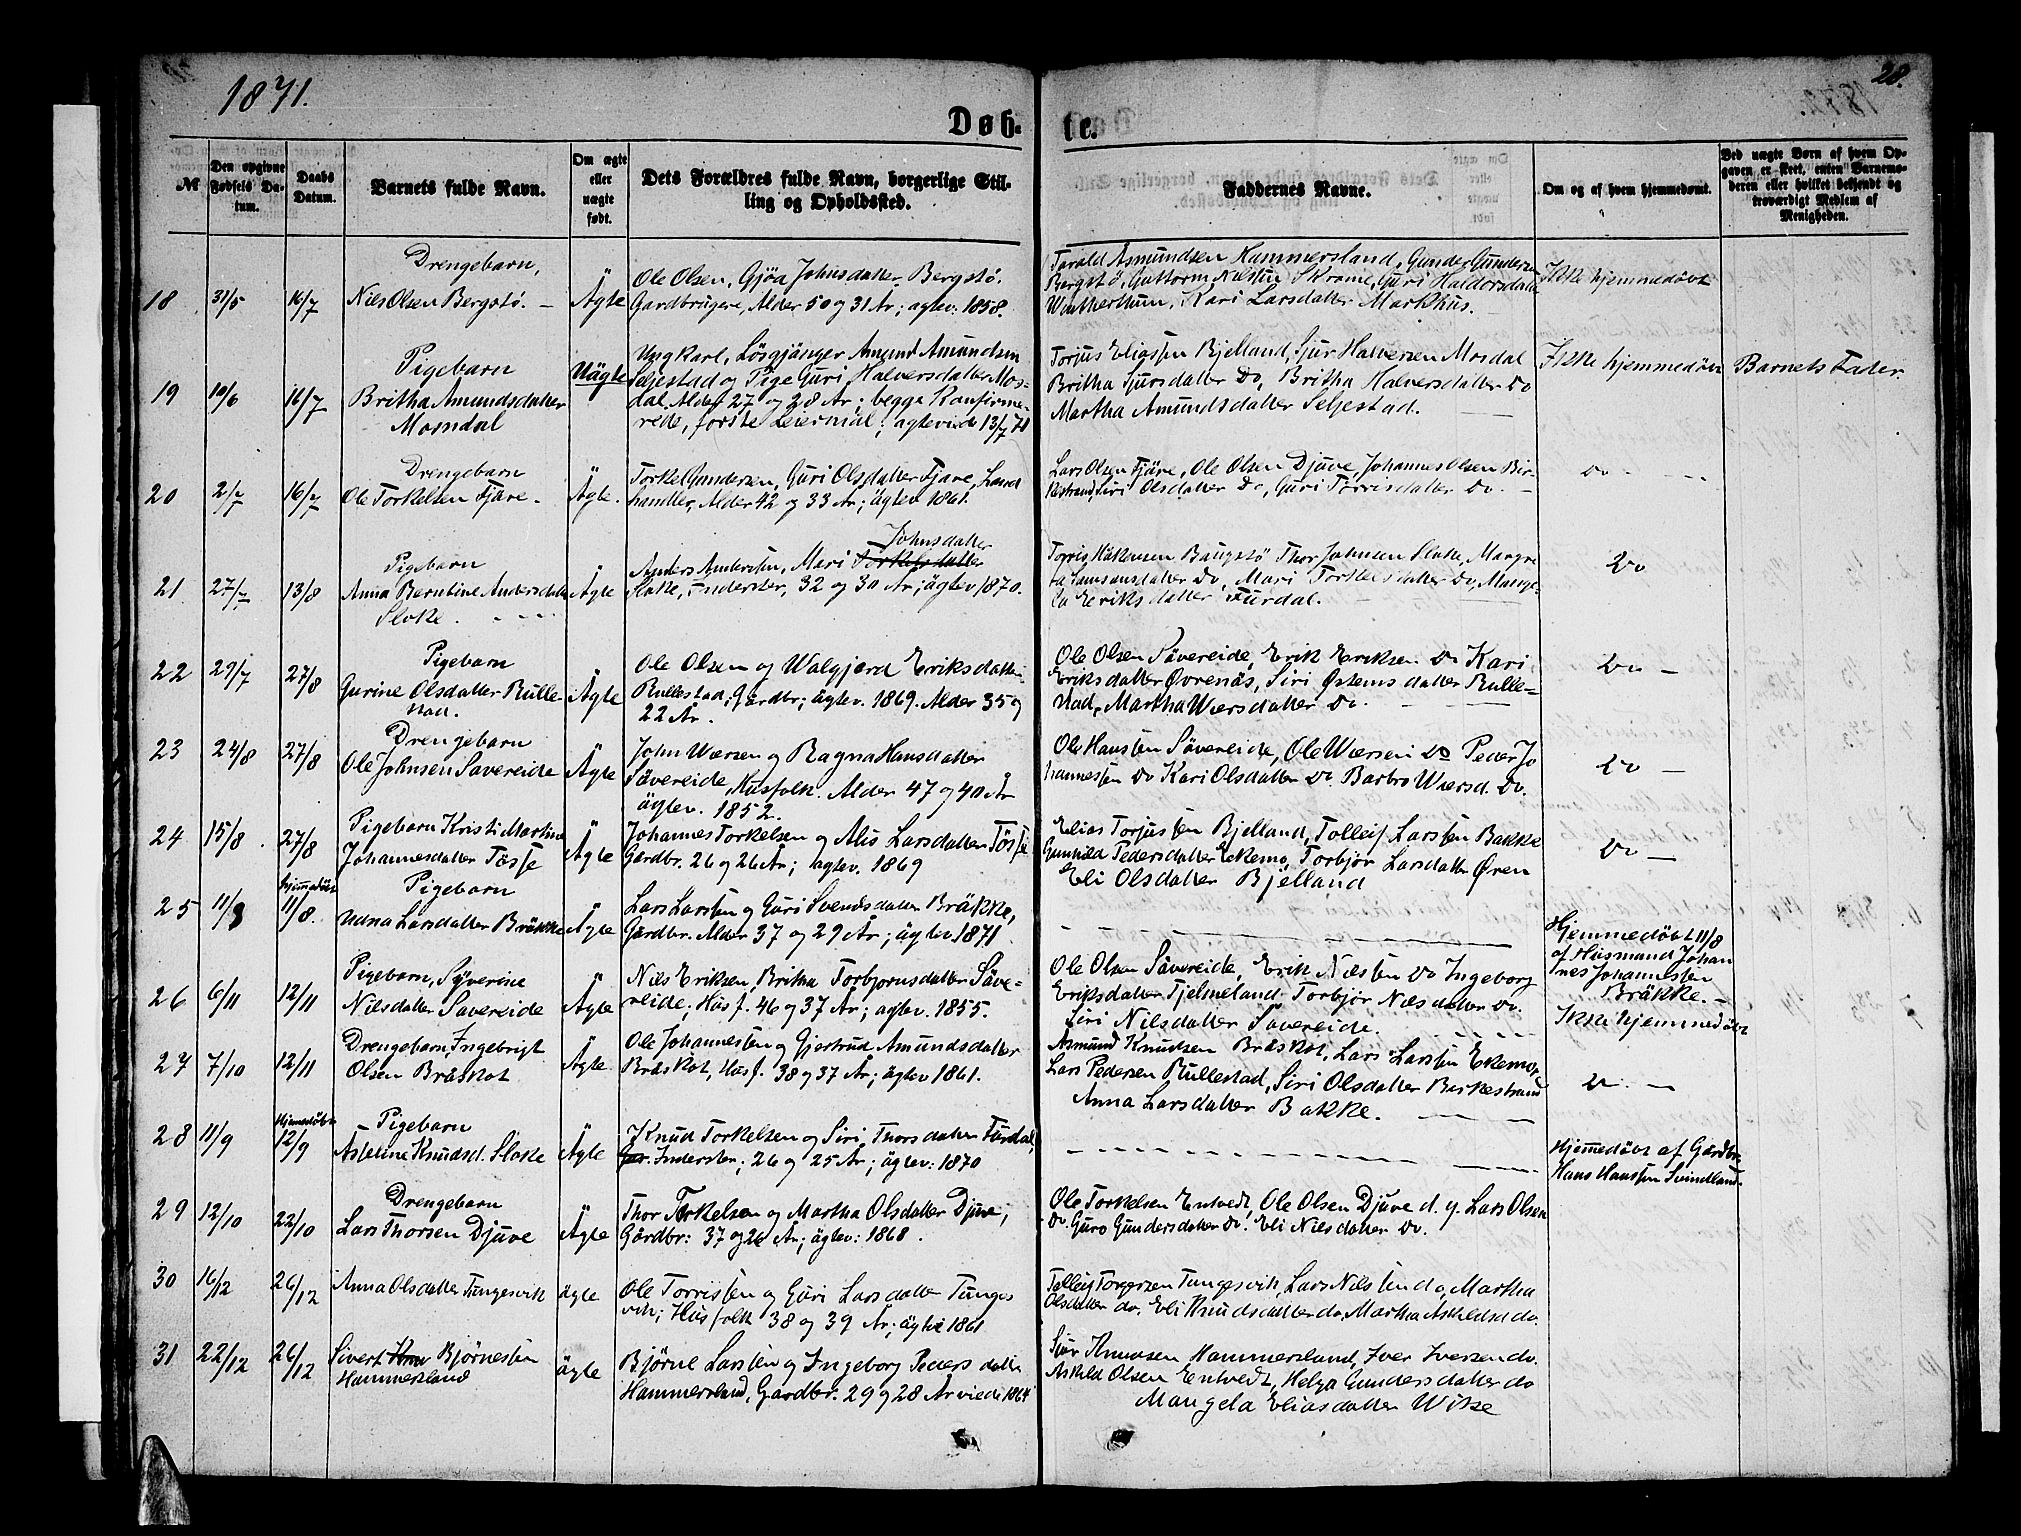 1871.
28.
Døb-
te.
№
Den opgivne Fødsels Da-
tum.
Daabs
Datum.
Barnets fulde Navn.
Om ægte
eller
uægte
født.
Dets Forældres fulde Navn, borgerlige Stil-
ling og Opholdssted.
Faddernes Navne.
Om og af hvem hjemmedøbt.
Ved uægte Børn af hvem Op-
gaven er skeet, enten Barnemo-
deren eller hvilket bekjendt og
troværdigt Medlem af
Menigheden.
18 31/5 16/7
Drengebarn,
Nils Olsen Bergstö. –
Ägte
Ole Olsen, Gjöa Johnsdatter Bergstö.
Gardbrugere, Alder 50 og 31 År; ägtev: 1858.
Tarald Asmundsen Hammersland, Gunder Gundersen
Bergstö, Guttorm Nilssen Skrame, Guri Haldorsdatter
Winterthun, Kari Larsdatter Markhus.
Ikke hjemmedövt
19 10/6 16/7
Pigebarn
Britha Amundsdatter
Mosndal
Uägte
Ungkarl, Lösgjänger Amund Amundsen
Seljestad og Pige Guri Halversdatter Mos-
dal. Alder 27 og 28 År; begge Konfirme-
rede, förste Leiermål; ägteviede 13/7 71
Torjus Eliassen Bjelland, Sjur Halversen Mosdal
Britha Sjursdatter Do, Britha Halversdatter Do
Martha Amundsdatter Seljestad.
Ikke hjemmedövt
Barnets Fader.
20 2/7 16/7
Drengebarn
Ole Torkelsen Fjäre.
Ägte.
Torkel Gundersen, Guri Olsdatter Fjäre, Land
handler, Alder 42 og 33 År; ägtev 1861.
Lars Olsen Fjäre, Ole Olsen Djuve, Johannes Olsen Bir-
kestrand, Siri Olsdatter Do, Guri Torrisdatter Do. –
Do –
21 27/7 13/8
Pigebarn
Anna Berntine Andersdatter
Sloke.
Ägte
Johnsdatter
Anders Andersen, Mari Torkelsdatter
Sloke, Inderster, 32 og 30 År; ägtev 1870.
Torris Håkensen Baugstö Thor Johnsen Sloke, Margre
ta Samsonsdatter Do, Mari Torkelsdatter Do, Mange-
la Eriksdatter Furdal.
Do
22 29/7 27/8
Pigebarn
Gurine Olsdatter Rulle-
stad.
Ägte
Ole Olsen og Walgjerd Eriksdatter
Rullestad; Gårdbr; ägtev. 1869. Alder 35 og
22 År.
Ole Olsen Sävereide, Erik Eriksen Do Kari
Eriksdatter Øvrenäs, Siri Østensdatter Rulle-
stad, Martha Wiersdatter Do.
Do –
23 24/8 27/8
Drengebarn
Ole Johnsen Savereide
Ägte
John Wiersen og Ragna Hansdatter
Sävereide, Husfolk. Alder 47 og 40 År
ägtev. 1852.
Ole Hanssen Sävereide, Ole Wiersen Do Peder Jo
hannessen Do Kari Olsdatter Do Barbro Wiersd. Do.
Do –
24 15/8 27/8
Pigebarn Kristi Martine
Johannesdatter Tösse
Ägte
Johannes Torkelsen og Alis Larsdatter Tösse
Gardbr. 26 og 26 År; ägtev. 1869
Elias Torjussen Bjelland, Tolleif Larssen Bakke
Gunhild Pedersdatter Ekemo, Torbjör Larsdatter Øren
Eli Olsdatter Bjelland
Do –
25 11/8
hjemmedövt
11/8.
Pigebarn
Udna Larsdatter Bräkke
Ägte
Lars Larssen og Guri Svendsdatter Bräkke,
Gårdbr. Alder 37 og 29 År; ägtev 1871.
Hjemmedövt 11/8
af Husmand Johan
nes Johannessen
Bräkke. –
26 6/11 12/11
Pigebarn, Syverine
Nilsdatter Savereide
Ägte
Nils Eriksen, Britha Torbjornsdatter Säve-
reide, Husf. 46 og 37 År; ägtev. 1855.
Ole Olsen Sävereide, Erik Nilssen Do Ingeborg
Eriksdatter Fjelmeland. Torbjör Nilsdatter Do.
Siri Nilsdatter Savereide.
Ikke hjemmedövt
27 7/10 12/11
Drengebarn Ingebrigt
Olsen Bråskot
Ägte
Ole Johannessen og Gjertrud Amundsdatter
Bråskot, Husf. 38 og 37 År; ägtev 1861.
Asmund Knudsen Bråskot, Lars Larssen Ekemo,
Lars Pedersen Rullestad, Siri Olsdatter Birkestrand
Anna Larsdatter Bakke.
Do. –
28 11/9
Hjemmedöbt
12/9
Pigebarn
Asseline Knudsd. Sloke
Ägte
Knud Torkelsen og Siri Thorsdatter Furdal,
Inderster; 26 og 25 År; ägtev: 1870
Hjemmedövt af Gårdbr.
Hans Hanssen Svindland.
29 12/10 22/10
Drengebarn
Lars Thorsen Djuve
Ägte
Thor Torkelsen og Martha Olsdatter Djuve;
Gårdbr: 37 og 26 År; ägtev: 1868.
Ole Torkelsen Entvedt, Ole Olsen Djuve d. y. Lars Olsen
Do. Guro Gundersdatter Do. Eli Nilsdatter Do.
30 16/12 26/12
Anna Olsdatter Tungesvik
ägte
Ole Torrissen og Guri Larsdatter Tunges
vik; Husfolk 38 og 39 År; ägtev 1861
Tolleif Torgersen Tungesvik, Lars Nilssen do, Martha
Olsdatter do, Eli Knudsdatter do, Martha Askildsd do.
31 22/12 26/12
Sivert Bjørnessen
Hammersland
ägte
Bjørne Larssen og Ingeborg Pedersdatter
Hammersland, Gardbr. 29 og 28 År viede 1864
Sjur Knudsen Hammersland, Iver Iversen do.
Askild Olsen Entvedt, Helga Gundersdatter do
Mangela Eliasdatter Wike